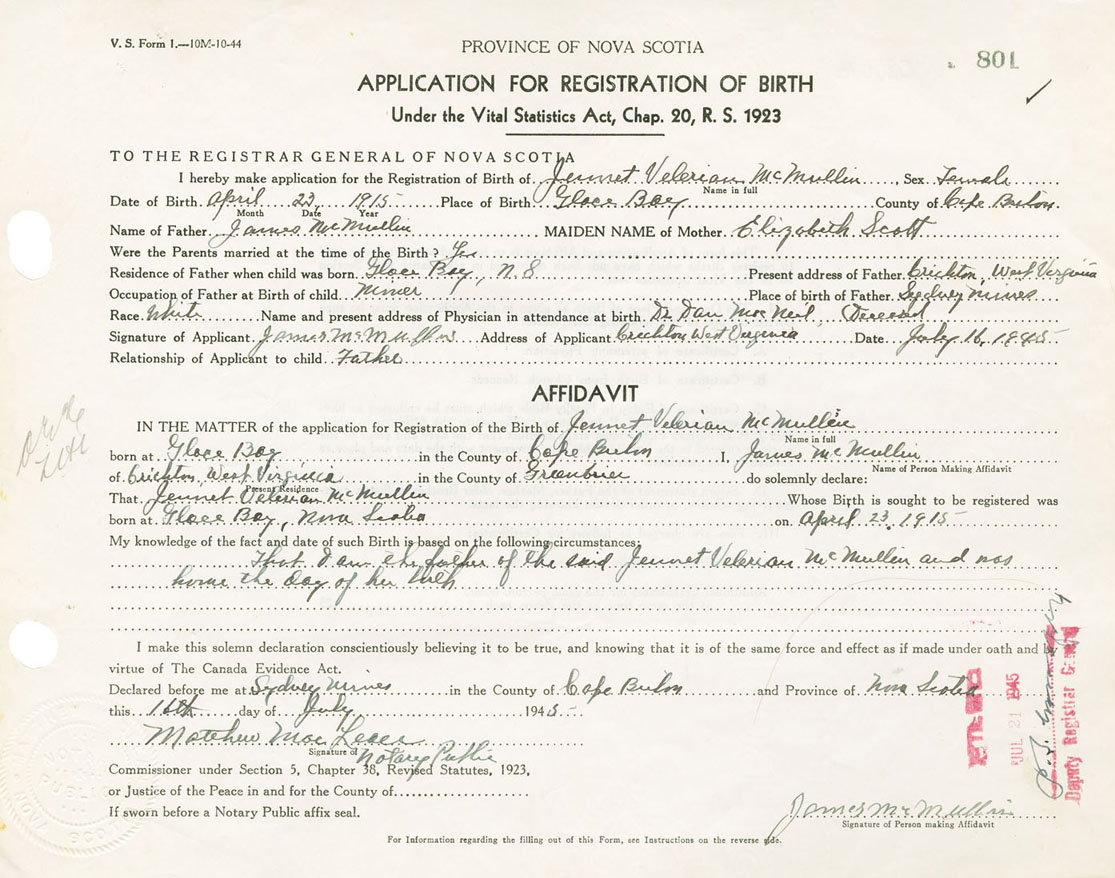 V. S. Form 1.—10M-10-44
PROVINCE OF NOVA SCOTIA
801
APPLICATION FOR REGISTRATION OF BIRTH
Under the Vital Statistics Act, Chap. 20, R. S. 1923
TO THE REGISTRAR GENERAL OF NOVA SCOTIA
I hereby make application for the Registration of Birth of Jennet Velerian McMullin, Sex Female
Name in full
Date of Birth April 23, 1915 Place of Birth Glace Bay County of Cape Breton
Month Date Year
Name of Father James McMullin MAIDEN NAME of Mother Elizabeth Scott
Were the Parents married at the time of the Birth? Yes
Residence of Father when child was born Glace Bay, N. S Present address of Father Crichton, West Virginia
Occupation of Father at Birth of child Miner Place of birth of Father Sydney Mines
Race White Name and present address of Physician in attendance at birth Dr Dan MacNeil, Deceased
Signature of Applicant James McMullin Address of Applicant Crichton West Virginia Date July 16, 1945
Relationship of Applicant to child Father
AFFIDAVIT
IN THE MATTER of the application for Registration of the Birth of Jennet Velerian McMullin
Name in full
born at Glace Bay in the County of Cape Breton I, James McMullin
Name of Person Making Affidavit
of Crichton, West Virginia in the County of Greenbrier do solemnly declare:
Present Residence
That Jennet Velerian McMullin Whose Birth is sought to be registered was
born at Glace Bay, Nova Scotia on April 23, 1915
My knowledge of the fact and date of such Birth is based on the following circumstances:
That I am the father of the said Jennet Velerian McMullin and was
home the day of her birth
I make this solemn declaration conscientiously believing it to be true, and knowing that it is of the same force and effect as if made under oath and by
virtue of The Canada Evidence Act.
Declared before me at Sydney Mines in the County of Cape Breton and Province of Nova Scotia
this 16th day of July 1945
Matthew Mac
Signature of
Notary Public
Commissioner under Section 5, Chapter 38, Revised Statutes, 1923,
or Justice of the Peace in and for the County of
If sworn before a Notary Public affix seal.
James McMullin
Signature of Person making Affidavit
For Information regarding the filling out of this Form, see Instructions on the reverse side.
JUL 21 1945
Deputy Registrar General
NOVA SCOTIA